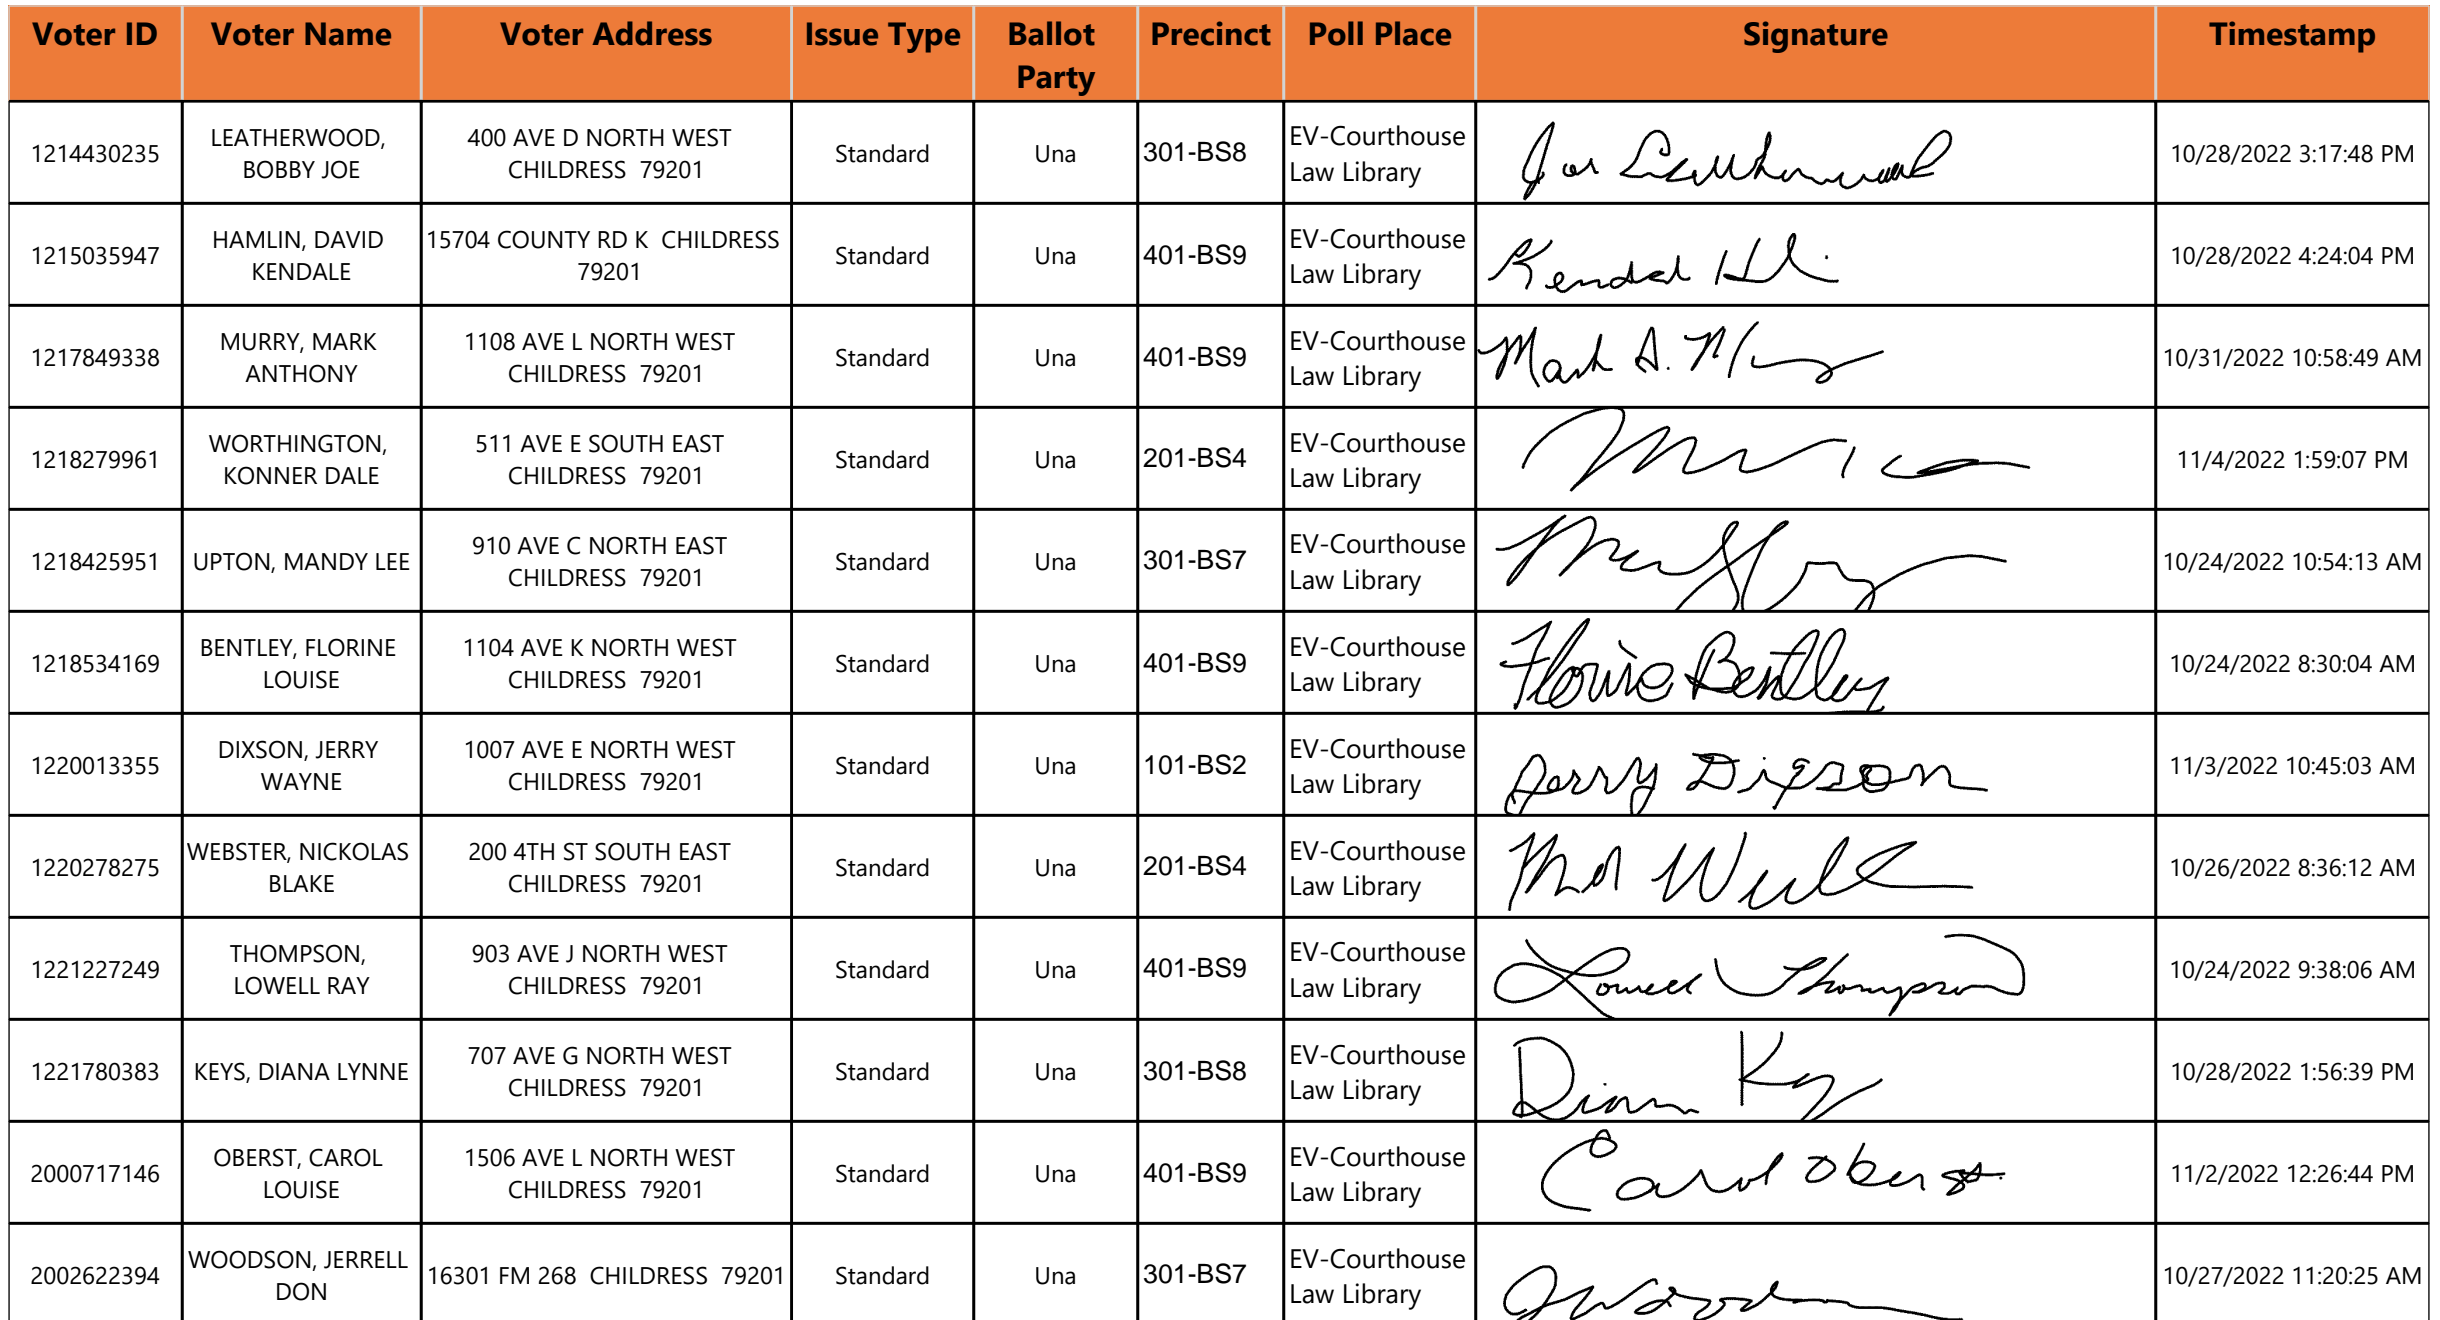 Voter ID Voter Name Voter Address Issue Type Ballot Party Precinct Poll Place Signature Timestamp
1214430235 LEATHERWOOD, BOBBY JOE 400 AVE D NORTH WEST CHILDRESS 79201 Standard Una 301-BS8 EV-Courthouse Law Library Joe Leatherwood 10/28/2022 3:17:48 PM
1215035947 HAMLIN, DAVID KENDALE 15704 COUNTY RD K CHILDRESS 79201 Standard Una 401-BS9 EV-Courthouse Law Library 10/28/2022 4:24:04 PM
1217849338 MURRY, MARK ANTHONY 1108 AVE L NORTH WEST CHILDRESS 79201 Standard Una 401-BS9 EV-Courthouse Law Library Mark A. 10/31/2022 10:58:49 AM
1218279961 WORTHINGTON, KONNER DALE 511 AVE E SOUTH EAST CHILDRESS 79201 Standard Una 201-BS4 EV-Courthouse Law Library 11/4/2022 1:59:07 PM
1218425951 UPTON, MANDY LEE 910 AVE C NORTH EAST CHILDRESS 79201 Standard Una 301-BS7 EV-Courthouse Law Library 10/24/2022 10:54:13 AM
1218534169 BENTLEY, FLORINE LOUISE 1104 AVE K NORTH WEST CHILDRESS 79201 Standard Una 401-BS9 EV-Courthouse Law Library Florine Bentley 10/24/2022 8:30:04 AM
1220013355 DIXSON, JERRY WAYNE 1007 AVE E NORTH WEST CHILDRESS 79201 Standard Una 101-BS2 EV-Courthouse Law Library Jerry Dixson 11/3/2022 10:45:03 AM
1220278275 WEBSTER, NICKOLAS BLAKE 200 4TH ST SOUTH EAST CHILDRESS 79201 Standard Una 201-BS4 EV-Courthouse Law Library 10/26/2022 8:36:12 AM
1221227249 THOMPSON, LOWELL RAY 903 AVE J NORTH WEST CHILDRESS 79201 Standard Una 401-BS9 EV-Courthouse Law Library Lowell Thompson 10/24/2022 9:38:06 AM
1221780383 KEYS, DIANA LYNNE 707 AVE G NORTH WEST CHILDRESS 79201 Standard Una 301-BS8 EV-Courthouse Law Library 10/28/2022 1:56:39 PM
2000717146 OBERST, CAROL LOUISE 1506 AVE L NORTH WEST CHILDRESS 79201 Standard Una 401-BS9 EV-Courthouse Law Library Carol Oberst 11/2/2022 12:26:44 PM
2002622394 WOODSON, JERRELL DON 16301 FM 268 CHILDRESS 79201 Standard Una 301-BS7 EV-Courthouse Law Library 10/27/2022 11:20:25 AM